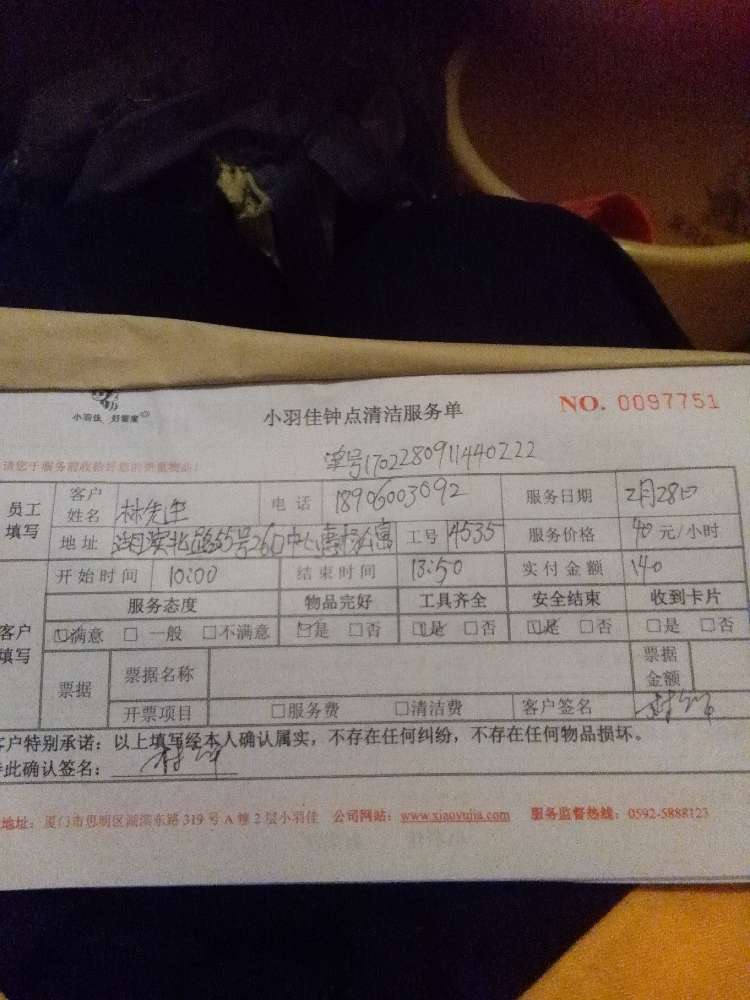 小羽佳 好管家
小羽佳钟点清洁服务单
NO. 0097751
请您于服务前收拾好您的贵重物品！
单号1702280911440222
员工填写 客户姓名 林先生 电话 18906003092 服务日期 2月28日
地址 湖滨北路55号260中心惠 公寓 工号 4535 服务价格 40元/小时
客户填写 开始时间 10:00 结束时间 13:50 实付金额 140
服务态度 物品完好 工具齐全 安全结束 收到卡片
☑满意 □一般 □不满意 ☑是 □否 ☑是 □否 ☑是 □否 □是 □否
票据 票据名称 票据金额
开票项目 □服务费 □清洁费 客户签名
客户特别承诺：以上填写经本人确认属实，不存在任何纠纷，不存在任何物品损坏。
特此确认签名：
地址：厦门市思明区湖滨东路319号A幢2层小羽佳 公司网站：www.xiaoyujia.com 服务监督热线：0592-5888123